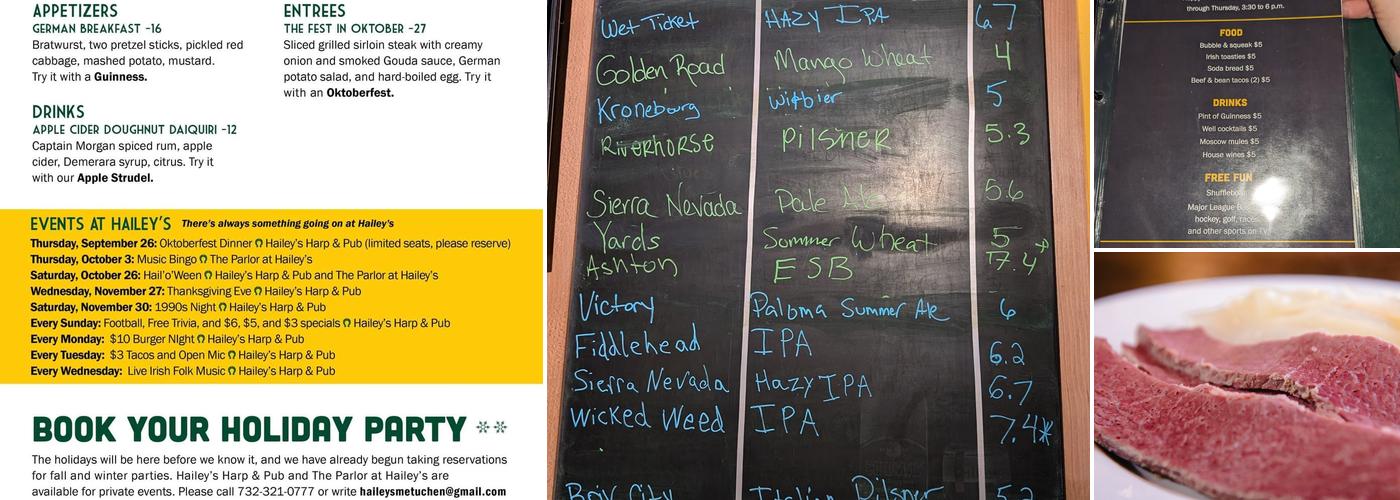 APPETIZERS
GERMAN BREAKFAST –16
Bratwurst, two pretzel sticks, pickled red
cabbage, mashed potato, mustard.
Try it with a Guinness.
DRINKS
APPLE CIDER DOUGHNUT DAIQUIRI –12
Captain Morgan spiced rum, apple
cider, Demerara syrup, citrus. Try it
with our Apple Strudel.
ENTREES
THE FEST IN OKTOBER –27
Sliced grilled sirloin steak with creamy
onion and smoked Gouda sauce, German
potato salad, and hard-boiled egg. Try it
with an Oktoberfest.
EVENTS AT HAILEY'S There's always something going on at Hailey's
Thursday, September 26: Oktoberfest Dinner Hailey's Harp & Pub (limited seats, please reserve)
Thursday, October 3: Music Bingo The Parlor at Hailey's
Saturday, October 26: Hail'o'Ween Hailey's Harp & Pub and The Parlor at Hailey's
Wednesday, November 27: Thanksgiving Eve Hailey's Harp & Pub
Saturday, November 30: 1990s Night Hailey's Harp & Pub
Every Sunday: Football, Free Trivia, and $6, $5, and $3 specials Hailey's Harp & Pub
Every Monday: $10 Burger NIght Hailey's Harp & Pub
Every Tuesday: $3 Tacos and Open Mic Hailey's Harp & Pub
Every Wednesday: Live Irish Folk Music Hailey's Harp & Pub
BOOK YOUR HOLIDAY PARTY
The holidays will be here before we know it, and we have already begun taking reservations
for fall and winter parties. Hailey's Harp & Pub and The Parlor at Hailey's are
available for private events. Please call 732-321-0777 or write haileysmetuchen@gmail.com
Wet Ticket HAZY IPA 6.7
Golden Road Mango Wheat 4
Kronebourg Witbier 5
RiverHorse Pilsner 5.3
Sierra Nevada Pale Ale 5.6
Yards Summer Wheat 5
Ashton ESB 7.4
Victory Paloma Summer Ale 6
Fiddlehead IPA 6.2
Sierra Nevada Hazy IPA 6.7
Wicked Weed IPA 7.4*
City Italian Pilsner 5.2
through Thursday, 3:30 to 6 p.m.
FOOD
Bubble & squeak $5
Irish toasties $5
Soda bread $5
Beef & bean tacos (2) $5
DRINKS
Pint of Guinness $5
Well cocktails $5
Moscow mules $5
House wines $5
FREE FUN
Major League
hockey, golf,
and other sports on